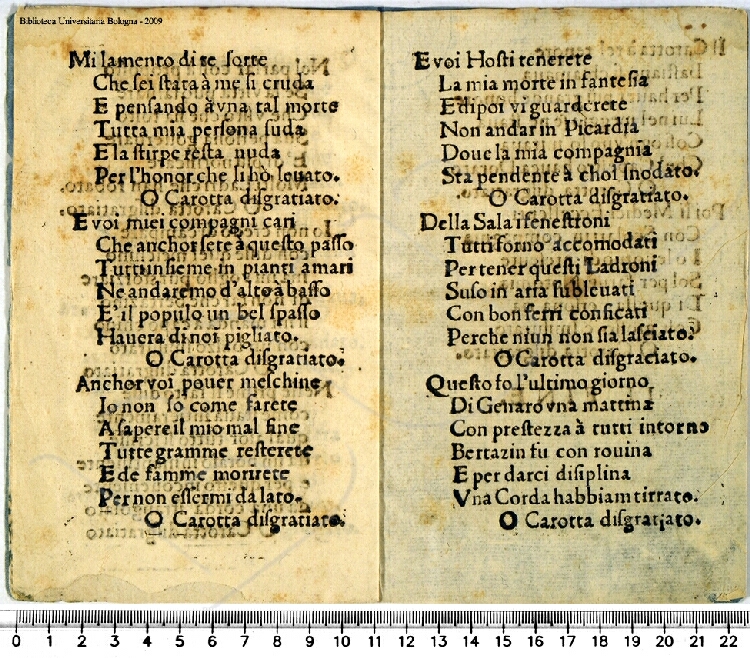 Biblioteca Universitaria Bologna - 2009
Mi lamento di te sorte
Che sei stata à me si cruda
E pensando à vna tal morte
Tutta mia persona suda
E la stirpe resta nuda
Per l'honor che li hò leuato.
O Carotta disgratiato.
E voi miei compagni cari
Che anchor sete à questo passo
Tutti insieme in pianti amari
Ne andaremo d'alto à basso
E' il populo un bel spasso
Hauera di noi pigliato.
O Carotta disgratiato.
Anchor voi pouer meschine
Io non sò come farete
A sapere il mio mal fine
Tutte gramme resterete
E de famme morirete
Per non essermi da lato.
O Carotta disgratiato.
E voi Hosti tenerete
La mia morte in fantesia
E di poi vi guarderete
Non andar in Picardia
Doue la mia compagnia
Sta pendente à chol snodato.
O Carotta disgratiato.
Della Sala i fenestroni
Tutti forno accomodati
Per tener questi Ladroni
Suso in aria subleuati
Con bon ferri conficati
Perche niun non sia lasciato.
O Carotta disgraciato.
Questo fo l'ultimo giorno
Di Genaro vna mattina
Con prestezza à tutti intorno
Bertazin fu con rouina
E per darci disiplina
Vna Corda habbiam tirrato.
O Carotta disgratiato.
0 1 2 3 4 5 6 7 8 9 10 11 12 13 14 15 16 17 18 19 20 21 22